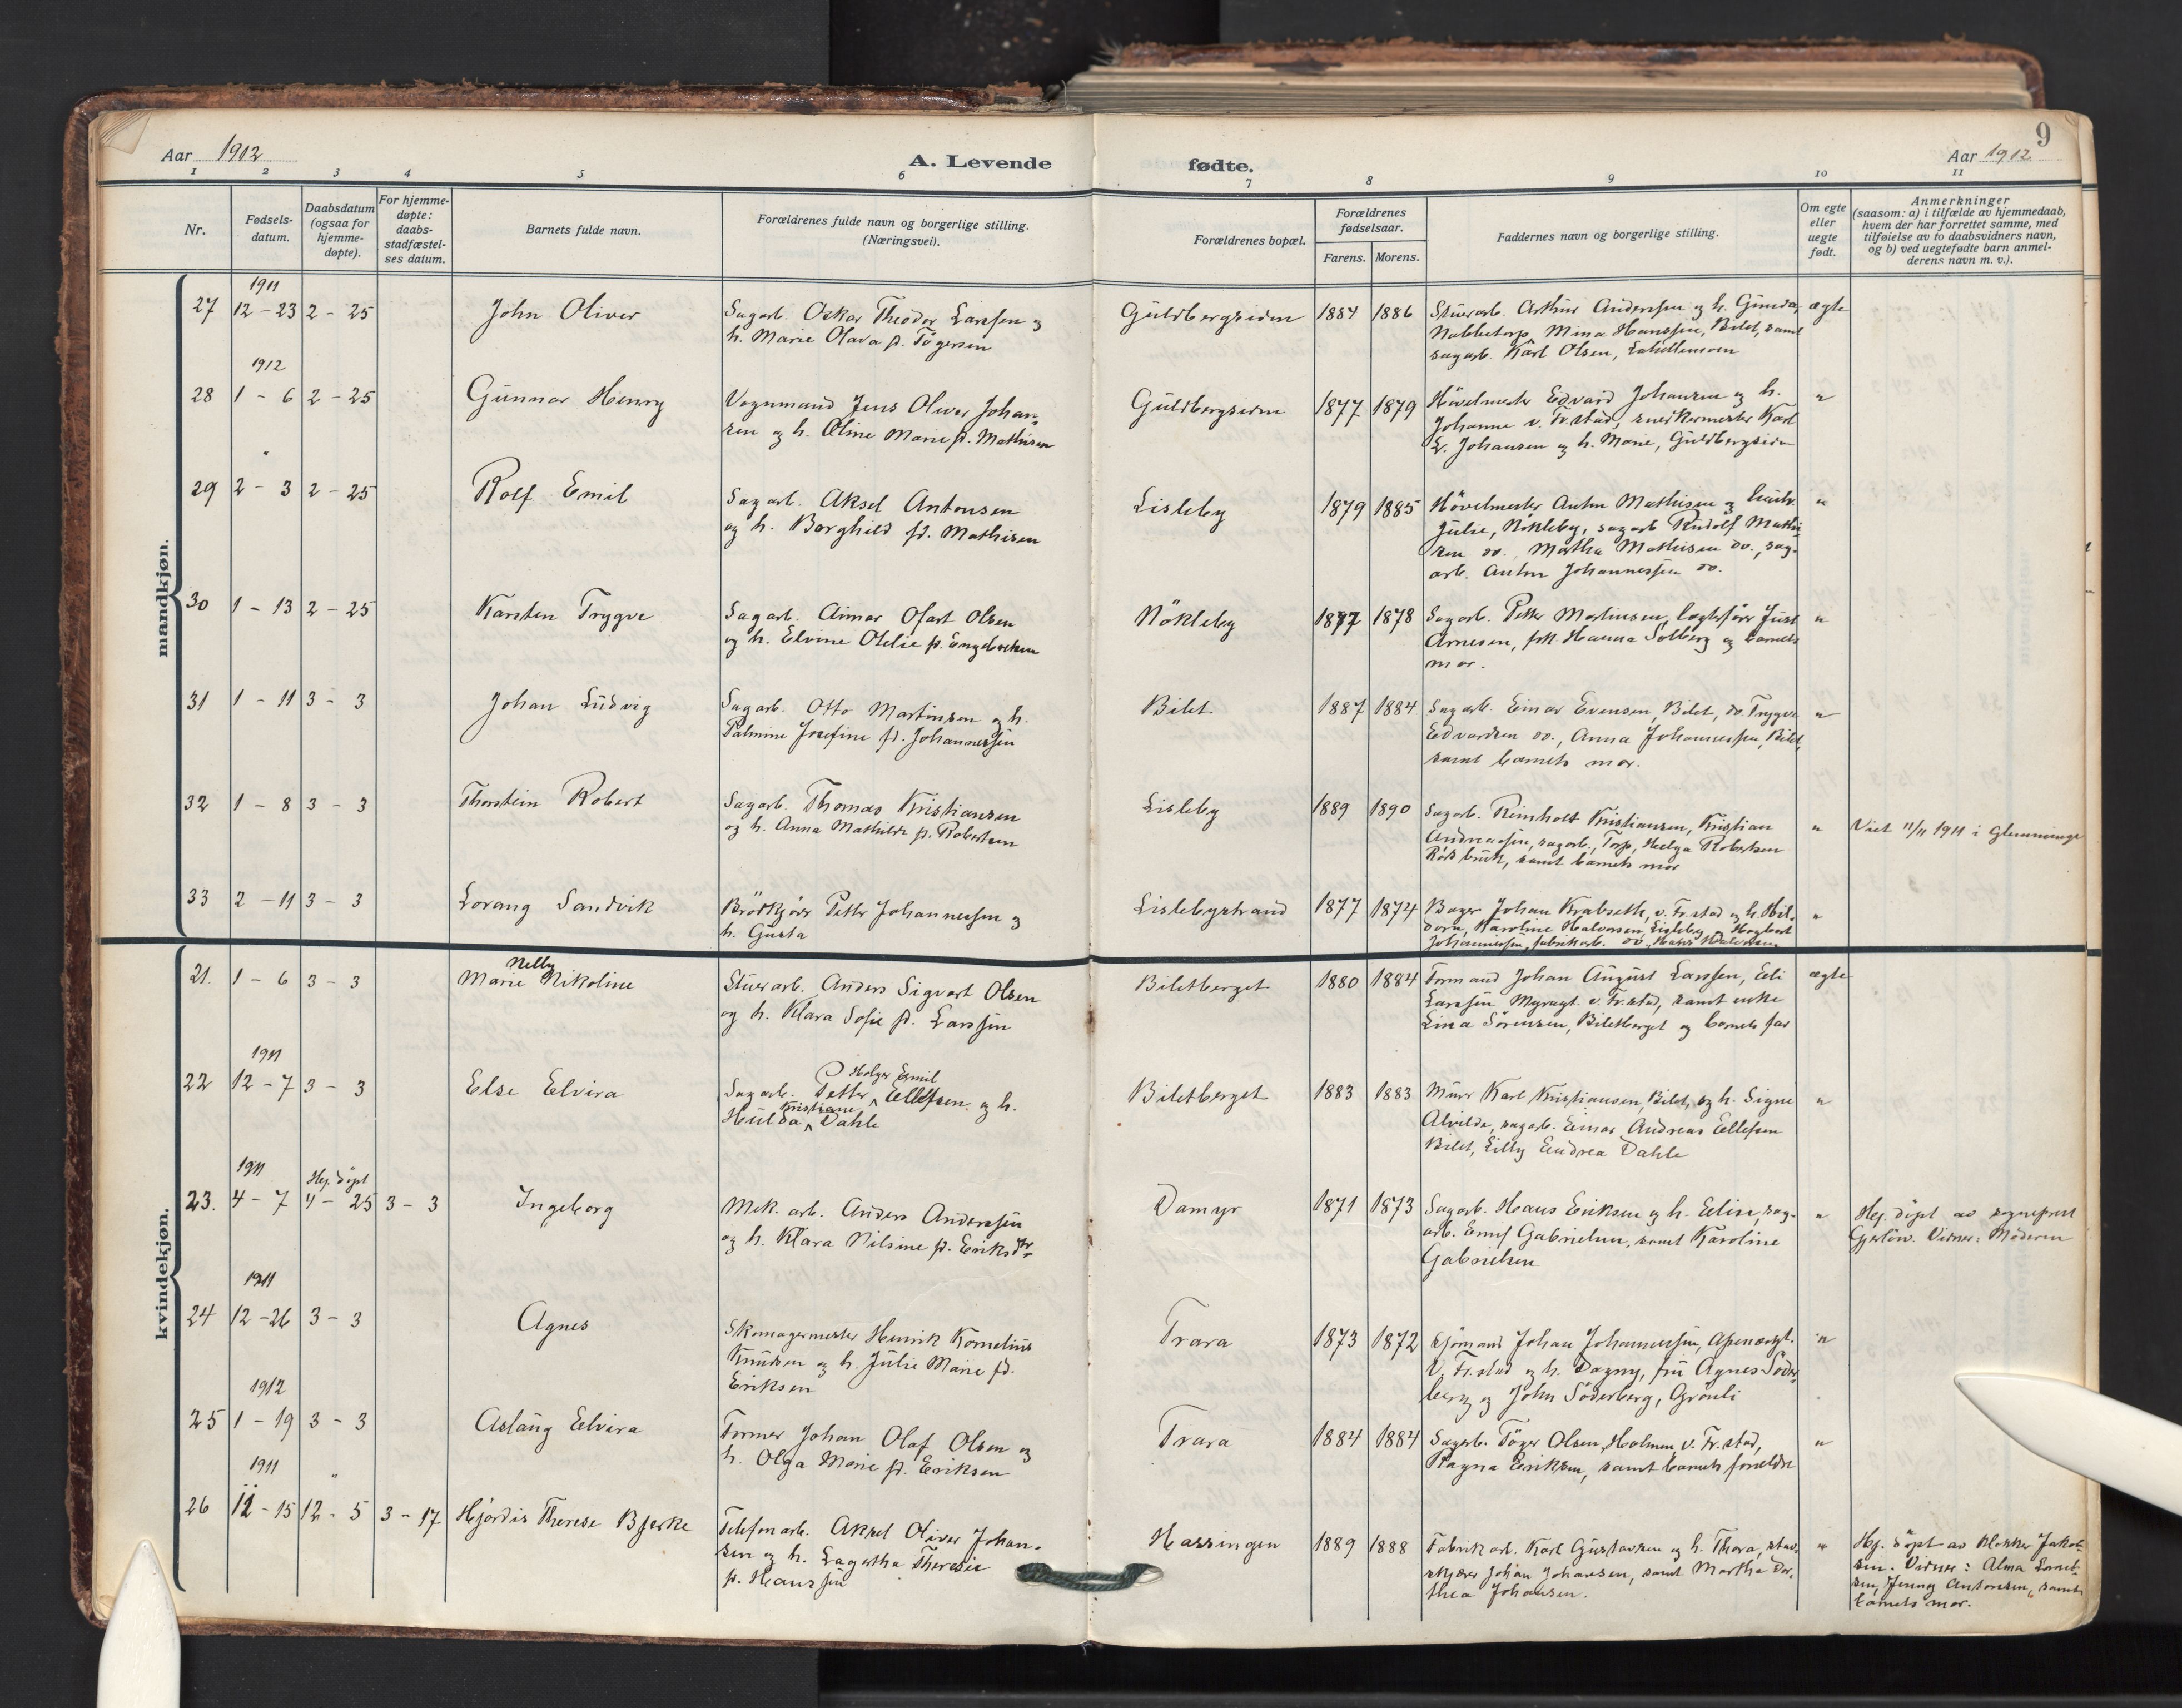 9
Aar 1912
A. Levende fødte.
Aar 1912
1 2 3 4 5 6 7 8 9 10 11
Nr.
Fødsels-
datum.
Daabsdatum
(ogsaa for
hjemme-
døpte).
For hjemme-
døpte:
daabs-
stadfæstel-
ses datum.
Barnets fulde navn.
Forældrenes fulde navn og borgerlige stilling.
(Næringsvei).
Forældrenes bopæl.
Forældrenes
fødselsaar.
Farens. Morens.
Faddernes navn og borgerlige stilling.
Om egte
eller
uegte
født.
Anmerkninger
(saasom: a) i tilfælde av hjemmedaab,
hvem der har forrettet samme, med
tilføielse av to daabsvidners navn,
og b) ved uegtefødte barn anmel-
derens navn m. v.).
mandkjøn.
1911
27 12-23 2-25 John Oliver
Sagarb. Oskar Theodor Larssen og
h. Marie Olava f. Tögersen
Guldbergsiden 1884 1886
Stuerarb. Arthur Anderssen og h. Gunda,
Nabbetorp, Mina Hanssen, Bilet, samt
sagarb. Karl Olsen,
ægte
1912
28 1-6 2-25 Gunnar Henry
Vognmand Jens Oliver Johan-
sen og h. Oline Marie f. Mathisen
Guldbergsiden 1877 1879
Hövelmester Edvard Johansen og h.
Johanne v. Fr.stad, snedkermester Karl
L. Johansen og h. Marie, Guldbergsiden
"
29 2-3 2-25 Rolf Emil
Sagarb. Aksel Antonsen
og h. Borghild f. Mathisen
Lisleby 1879 1885
Hövelmester Anton Mathisen og hustr.
Julie, Nökleby, sagarb. Rudolf Mathi-
sen do., Martha Mathisen do., sag-
arb. Anton Johannessen do.
"
30 1-13 2-25 Karsten Trygve
Sagarb. Aimar Ofart Olsen
og h. Elvine Otelie f. Engebretsen
Nökleby 1887 1878
Sagarb. Petter Martinsen, Just
Arnesen, frk. Hanna Solberg og barnets
mor.
"
31 1-11 3-3 Johan Ludvig
Sagarb. Otto Martinsen og h.
Palmine Josefine f. Johannessen
Bilet 1887 1884
Sagarb. Einar Evensen, Bilet, do. Trygve
Edvardsen do., Anna Johannessen, Bilet,
samt barnets mor.
"
32 1-8 3-3 Thorstein Robert
Sagarb. Thomas Kristiansen
og h. Anna Mathilde f. Robertsen
Lisleby 1889 1890
Sagarb. Reinholt Kristiansen, Kristian
Andreassen, sagarb., Torp, Helga Robertsen
samt barnets mor
"
Viet 11/11 1911 i Glemminge
33 2-11 3-3 Lorang Sandvik
Brödkjörer Petter Johannessen og
h. Gusta
Lislebystrand 1877 1874
Bager Johan Krabseth, v. Fr.stad og h. Hil-
Karoline Halvorsen, Lisleby,
Johannessen, fabrikarb. do., Hans Halvorsen
"
kvindekjøn.
21. 1-6 3-3 Marie Nelly Nikoline
Stuerarb. Anders Sigvart Olsen
og h. Klara Sofie f. Larssen
Biletberget 1880 1884
Formand Johan August Larssen, Eli
Larssen Myragt. v. Fr.stad, samt enke
Lina Sörensen, Biletberget og barnets far
ægte
1911
22 12-7 3-3 Else Elvira
Sagarb. Petter Holger Emil Ellefsen og h.
Hulda Kristiane Dahle
Biletberget 1883 1883
Murer Karl Kristiansen, Bilet, og h. Signe
Alvilde, sagarb. Einar Andreas Ellefsen
Bilet, Lilly Eendrea Dahle
"
1911 Hj. döpt
23. 4-7 4-25 3-3 Ingeborg
Mek. arb. Anders Anderssen
og h. Klara Nilsine f. Eriksdtr
Damyr 1871 1873
Sagarb. Hans Eriksen og h. Elise, sag-
arb. Emil Gabrielsen, samt Karoline
Gabrielsen
"
Hj. döpt av sogneprest
Gjerlöw. Vidner: Moderen
1911
24 12-26 3-3 Agnes
Skomagermester Henrik Kornelius
Knudsen og h. Julie Marie fd.
Eriksen
Trara 1873 1872
Sjömand Johan Johannessen,
v. Fr.stad og h. Dagny, fru Agnes Söder-
berg og John Söderberg, Grönli
"
1912
25 1-19 3-3 Aslaug Elvira
Former Johan Olaf Olsen og
h. Olga Marie f. Eriksen
Trara 1884 1884
Sagarb. Töger Olsen, Holmen v. Fr.stad,
Ragna Eriksen, samt barnets forældre
"
1911 "
26 11-15 12-5 3-17 Hjördis Therese Bjerke
Telefonarb. Aksel Oliver Johan-
sen og h. Lagertha Theresie
f. Hanssen
Hassingen 1889 1888
Fabrikarb. Karl Gustavsen og h. Thora, stav-
skjærer Johan Johansen, samt Martha Dor-
thea Johansen.
"
Hj. döpt av klokker Jakob-
sen. Vidner: Alma
Jenny Antonsen, samt
barnets mor.